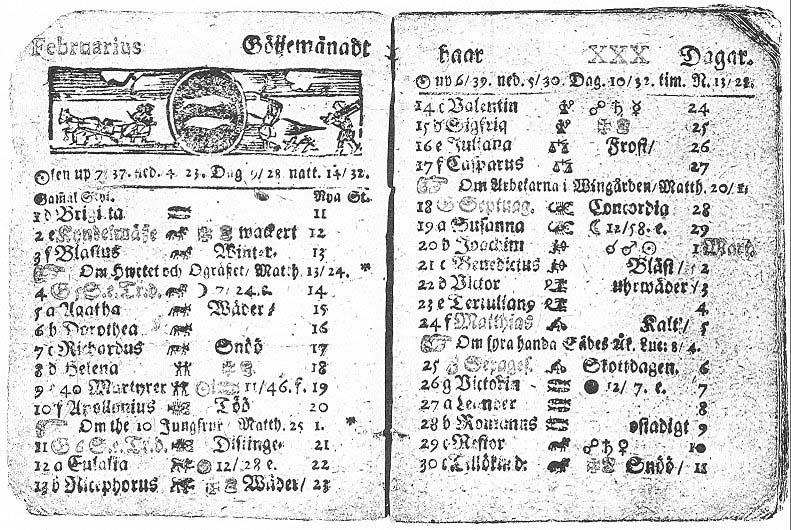 Februarius Göijemånadt
Solen up 7/37. ned. 4 23. Dag 9/28 natt. 14/32.
Gamal Styl. Nya St.
1 d Brigitta 11
2 e Kyndelmässe wackert 12
3 f Blasius Winter. 13
Om Hwetet och Ogräset/ Matth. 13/24. *
4 G 5 S. e. Tr. d. 7/24. 14
5 a Agatha Wäder/ 15
6 b Dorothea 16
7 c Richardus Snöö 17
8 d Helena 18
9 e 40 Martyrer 11/46. f. 19
10 f Apollonius Töö 20
Om the 10 Jungfrur/ Matth. 25 1. *
11 G 6 S. e. Tr. d. Distinge 21
12 a Eulalia 12/28 e. 22
13 b Nicephorus Wäder/ 23
haar XXX Dagar.
up 6/39. ned. 5/30. Dag. 10/32. tim. N. 13/28.
14 c Valentin ☍ ♄ ☿ 24
15 d Sigfrid 25
16 e Juliana Frost/ 26
17 f Casparus 27
Om Arbetarna i Wingården/ Matth. 20/1.
18 G Septuag. Concordia 28
19 a Susanna ☾ 12/58. e. 29
20 b Joachim ☌ ♂ ☉ 1 Mart.
21 c Benedictus Bläst/ 2
22 d Victor uhrwäder/ 3
23 e Tertuliang 4
24 f Matthias Kalt/ 5
Om fyra handa Sädes Åk. Luc: 8/4.
25 g Sexages. Skottdagen. 6
26 g Victorin ● 12/7. e. 7
27 a Leander 8
28 b Romanus ostadigt 9
29 c Nestor ☍ ♄ ♀ 10
30 c Tillökn d: Snöö/ 11